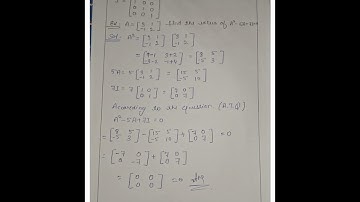 [1 0 0
0 1 0
0 0 1]
Qs: A = [3 1 -1 2] find the value of A²-5A+7I
Sol: A² = [3 1 -1 2] [3 1 -1 2]
= [9-1 3+2 -3-2 -1+4] = [8 5 -5 3]
5A = 5[3 1 -1 2] = [15 5 -5 10]
7I = 7[1 0 0 1] = [7 0 0 7]
According to the question (A.T.Q)
A²-5A+7I = 0
= [8 5 -5 3] - [15 5 -5 10] + [7 0 0 7] = 0
= [-7 0 0 -7] + [7 0 0 7]
= [0 0 0 0] = 0 Ans